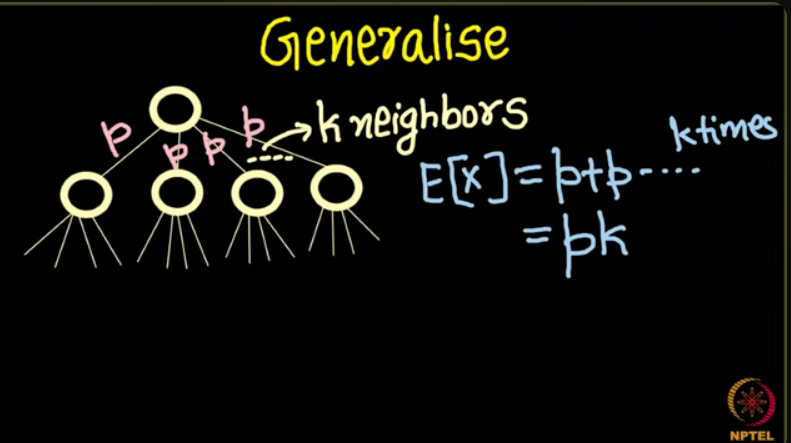 Generalise
p p p p
k neighbors
k times
E[x] = p+p-....
= pk
NPTEL